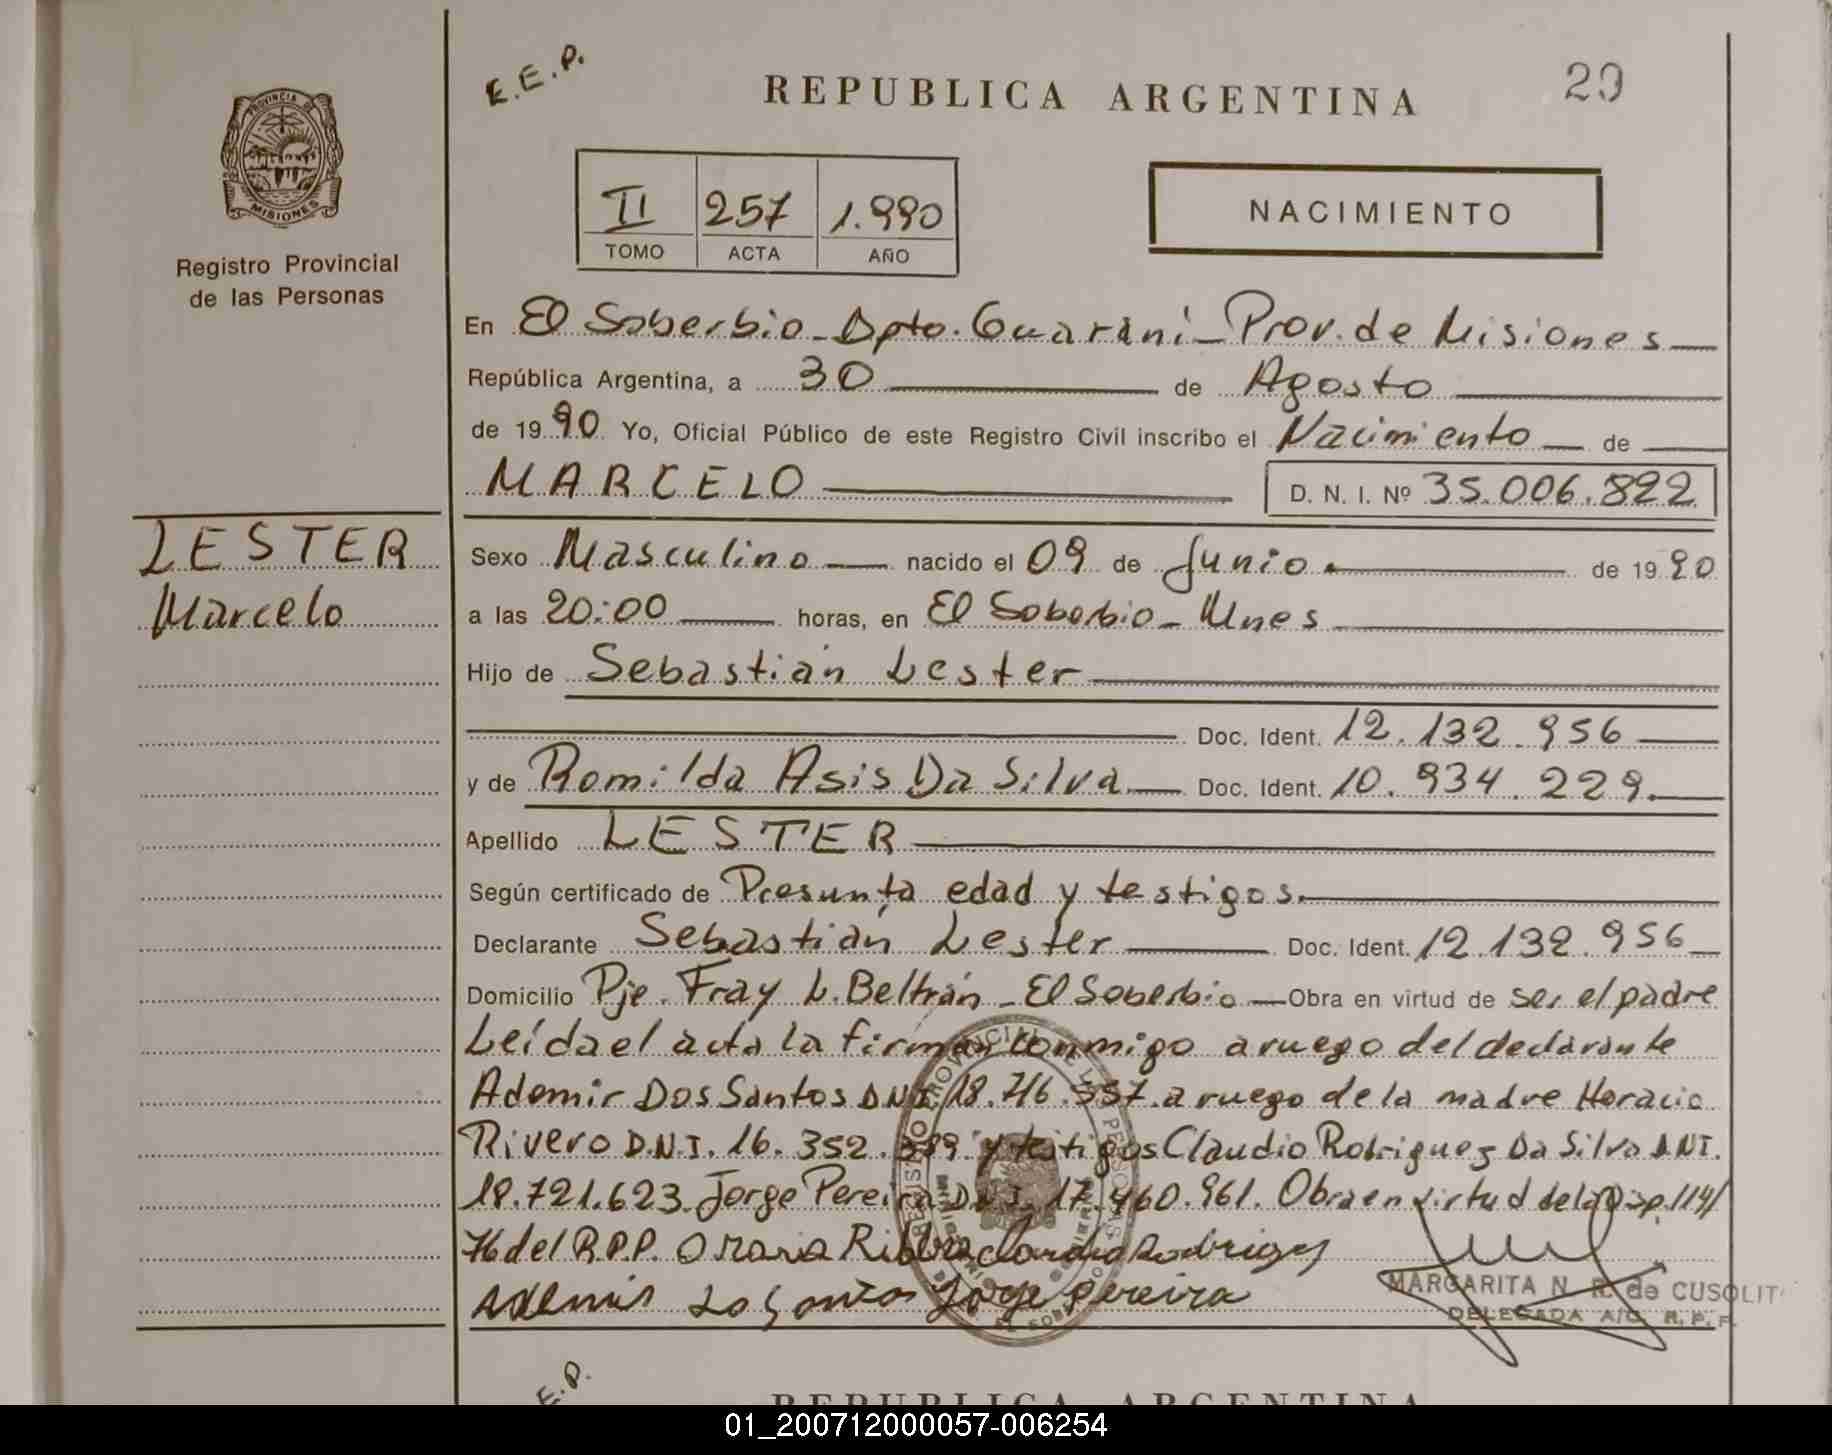 E.E.P.
REPUBLICA ARGENTINA
29
PROVINCIA DE
MISIONES
Registro Provincial
de las Personas
II 257 1.990
TOMO ACTA AÑO
NACIMIENTO
En El Soberbio - Dpto. Guaraní - Prov. de Misiones
República Argentina, a 30 de Agosto
de 1990 Yo, Oficial Público de este Registro Civil inscribo el Nacimiento de
MARCELO D. N. I. Nº 35.006.822
LESTER
Marcelo
Sexo Masculino nacido el 09 de Junio. de 1990
a las 20:00 horas, en El Soberbio - Mnes
Hijo de Sebastián Lester
Doc. Ident. 12.132.956
y de Romilda Asis Da Silva Doc. Ident. 10.934.229.
Apellido LESTER
Según certificado de Presunta edad y testigos.
Declarante Sebastián Lester Doc. Ident. 12.132.956
Domicilio Pje. Fray L. Beltrán - El Soberbio - Obra en virtud de ser el padre
Leída el acta la firman conmigo a ruego del declarante
Ademir Dos Santos DNI. 18.716.557. a ruego de la madre Horacio
Rivero D.N.I. 16.352. y testigos Claudio Rodriguez Da Silva DNI.
18.721.623 Jorge Pereira D.N.I. 17.460.961. Obra en virtud de la Disp. 114/
76 del R.P.P. Claudio Rodrigues
Jorge Pereira
MARGARITA N. R. de CUSOLIT
DELEGADA A/C. R. P. P.
E.P.
REPUBLICA ARGENTINA
01_200712000057-006254